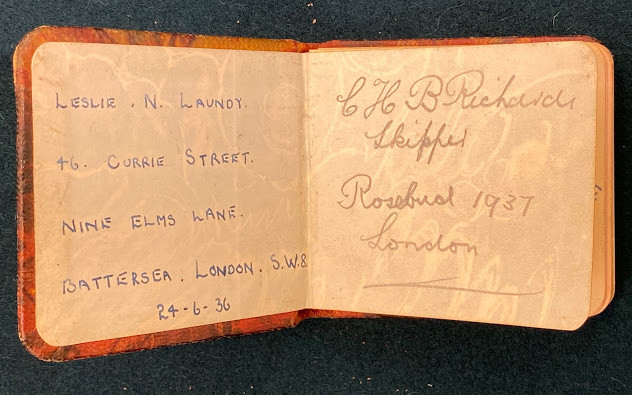 LESLIE . N. LAUNDY.
46. CURRIE STREET.
NINE ELMS LANE.
BATTERSEA. LONDON. S.W.8
24-6-36
C H B Richards
Skipper
Rosebud 1937
London